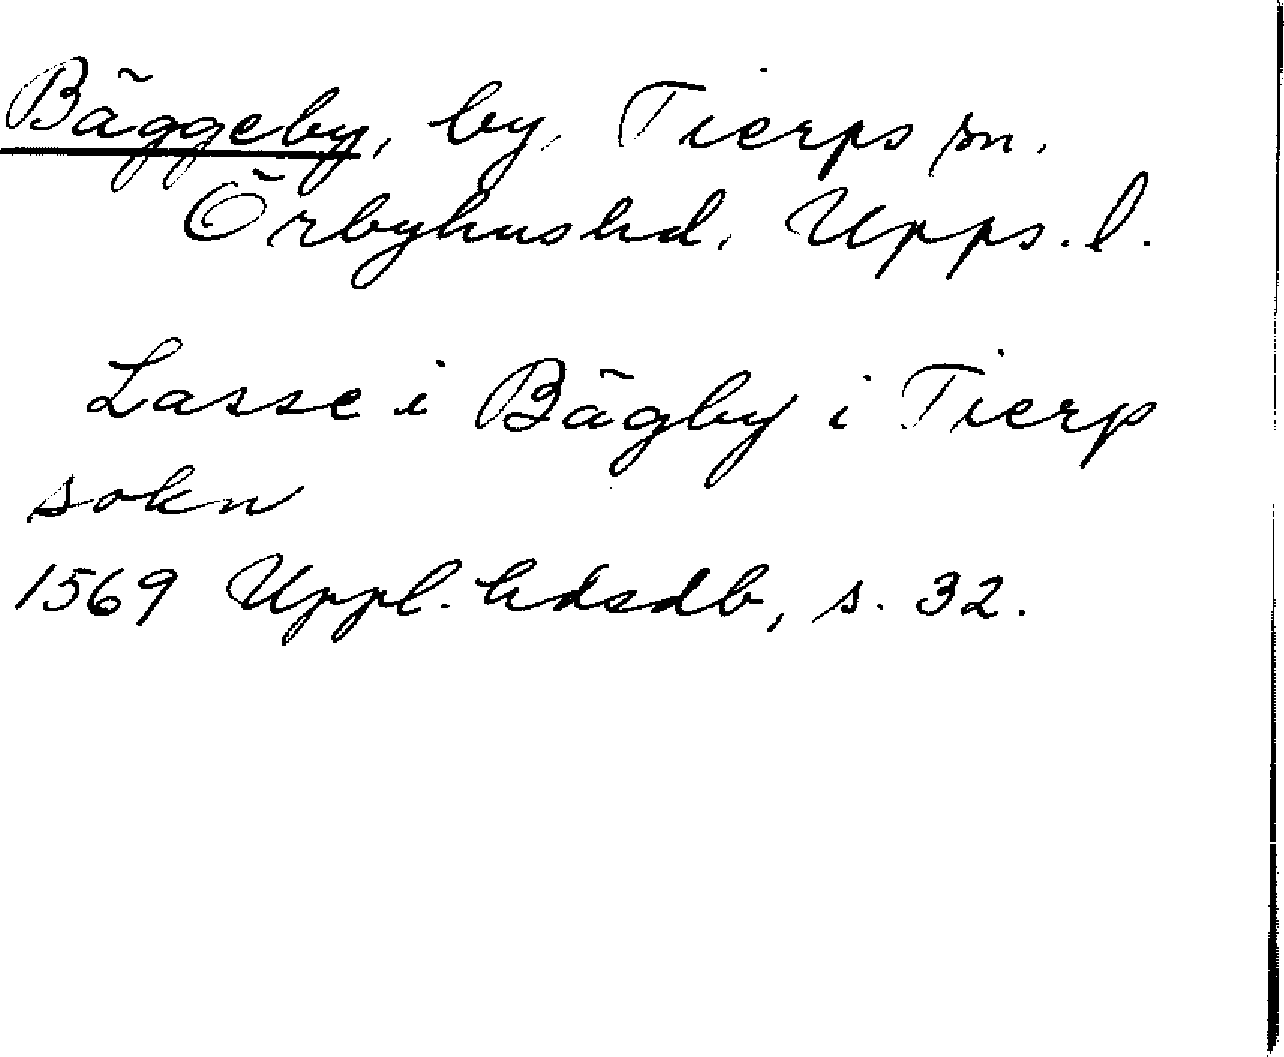 Bäggeby, by, Tierps sn.
Örbyhus hd. Upps. l.
Lasse i Bägby i Tierp
sokn
1569 Uppl. hdsdb, s. 32.